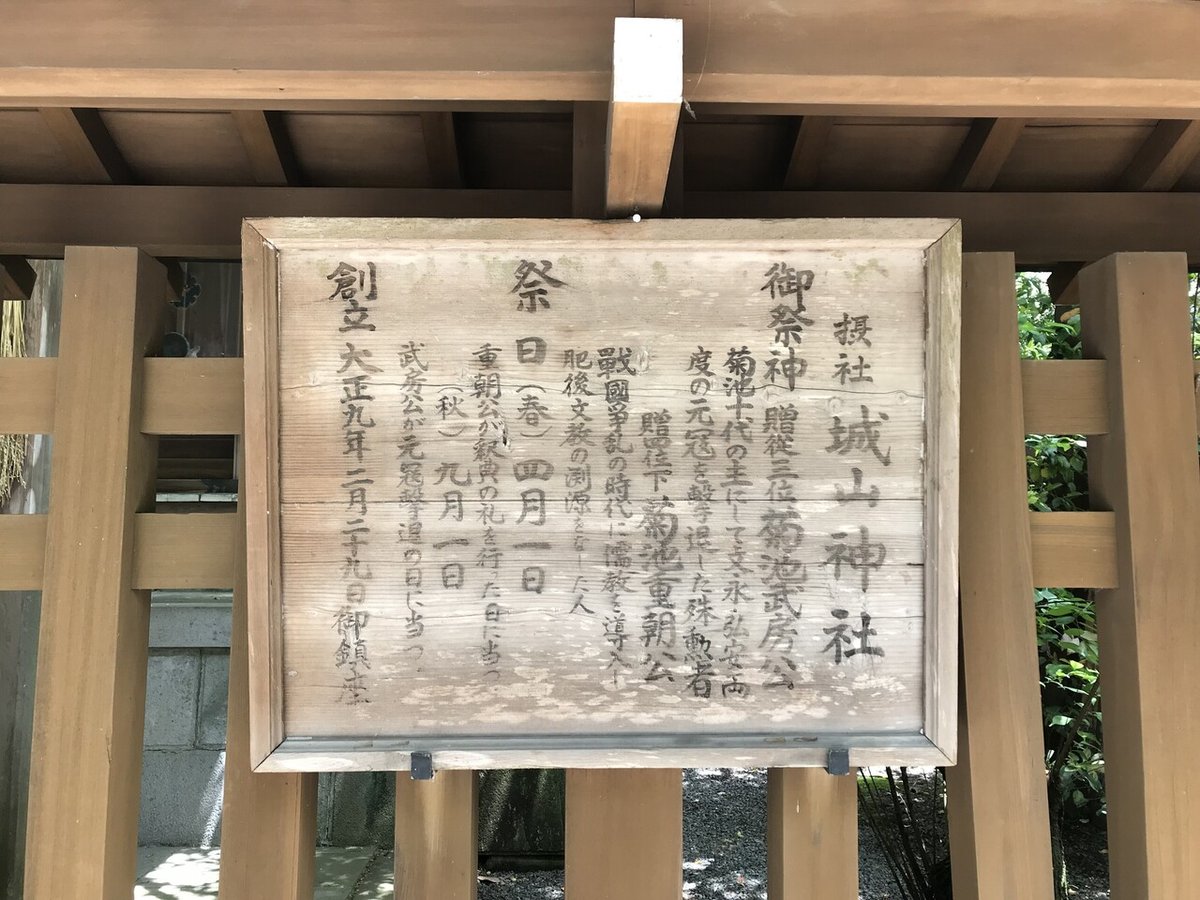 摂社 城山神社
御祭神 贈従三位菊池武房公
菊池十代の主にして文永弘安両
度の元冦を撃退した殊勲者
贈四位下菊池重朝公
戰國爭乱の時代に儒教を導入し
肥後文教の渕源をなした人
祭日(春)四月一日
重朝公が釈典の礼を行った日に当つ
(秋)九月一日
武房公が元冦撃退の日に当つ
創立 大正九年二月二十九日御鎮座